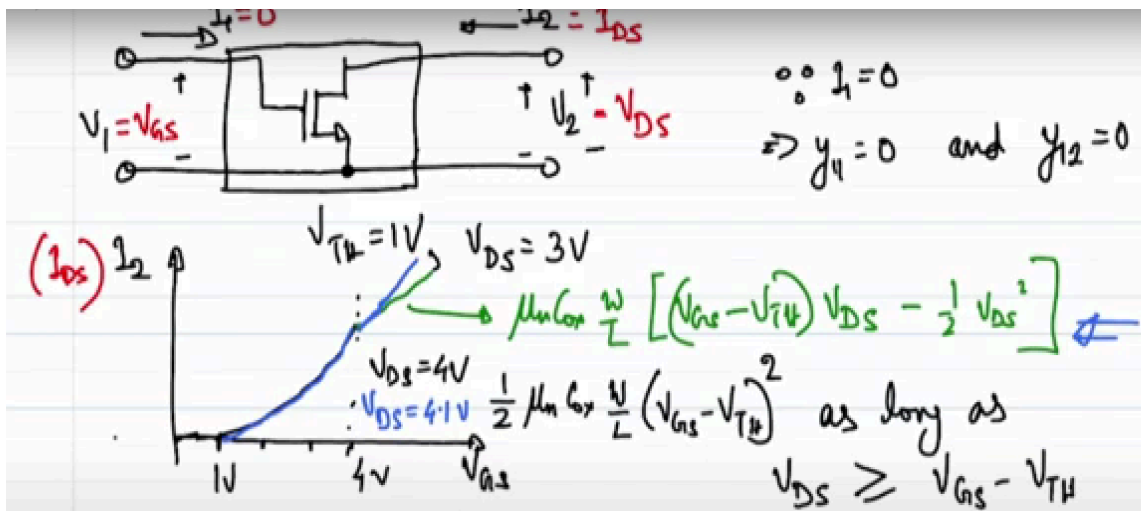 I₁=0
I₂ = I_DS
V₁=V_GS
+
-
+ V₂ = V_DS
-
∵ I₁=0
⇒ y₁₁=0 and y₁₂=0
(I_DS) I₂
V_TH=1V V_DS=3V
μₙCₒₓ W/L [(V_GS-V_TH) V_DS - 1/2 V_DS²]
V_DS=4V
V_DS=4.1V
1/2 μₙCₒₓ W/L (V_GS-V_TH)² as long as
V_DS ≥ V_GS - V_TH
1V 4V V_GS